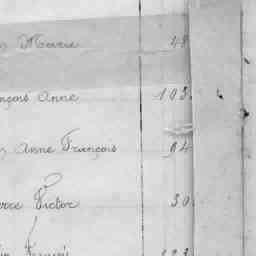 Marie 48
nçois Anne 103.
Anne François 94
rre Victor 30.
François 123